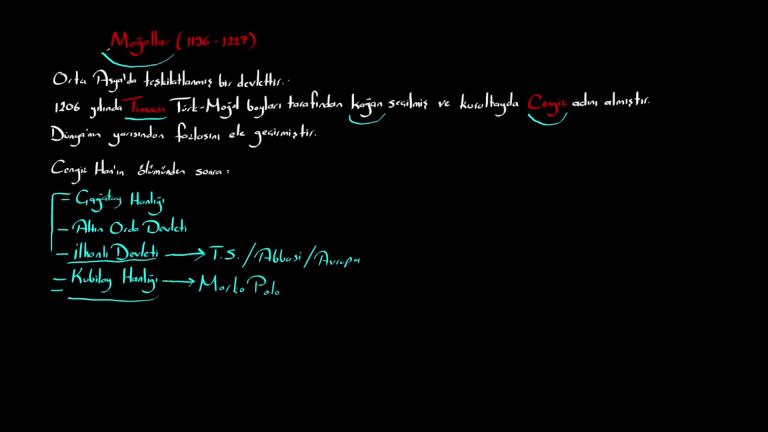 Moğollar (1196-1227)
Orta Asya'da teşkilatlanmış bir devlettir..
1206 yılında Timuçin Türk-Moğol boyları tarafından kağan seçilmiş ve kurultayda Cengiz adını almıştır.
Dünya'nın yarısından fazlasını ele geçirmiştir.
Cengiz Han'ın ölümünden sonra:
- Çağatay Hanlığı
- Altın Orda Devleti
- İlhanlı Devleti → T.S. / Abbasi / Avrupa
- Kubilay Hanlığı → Marko Polo